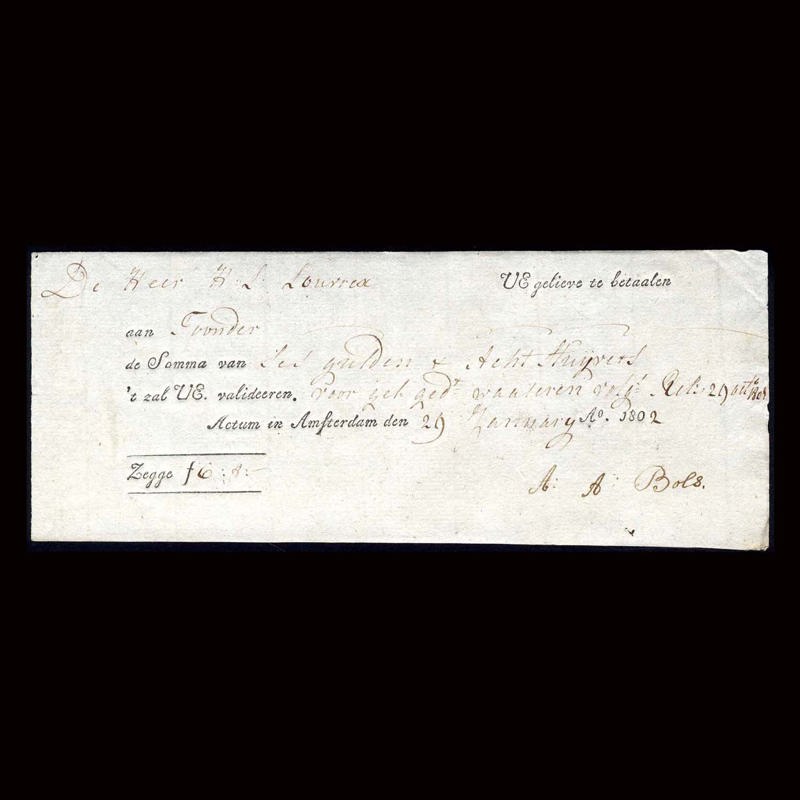 De Heer H: S: Lourrea UE gelieve te betaalen
aan Toonder
de Somma van Ses gulden & Acht Stuyvers
't zal UE. valideeren. voor gel: ged:
Actum in Amsterdam den 29 January Aº. 1802
Zegge ƒ 6: 8:-
A: A: Bols.